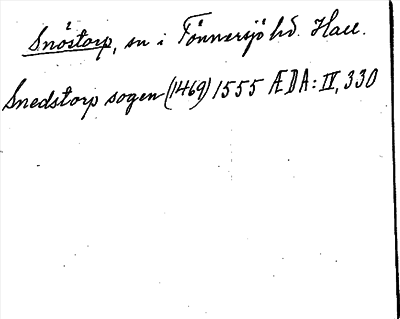 Snöstorp, sn i Tönnersjö hd. Hall.
Snedstorp sogen (1469) 1555 ÆDA: IV, 330